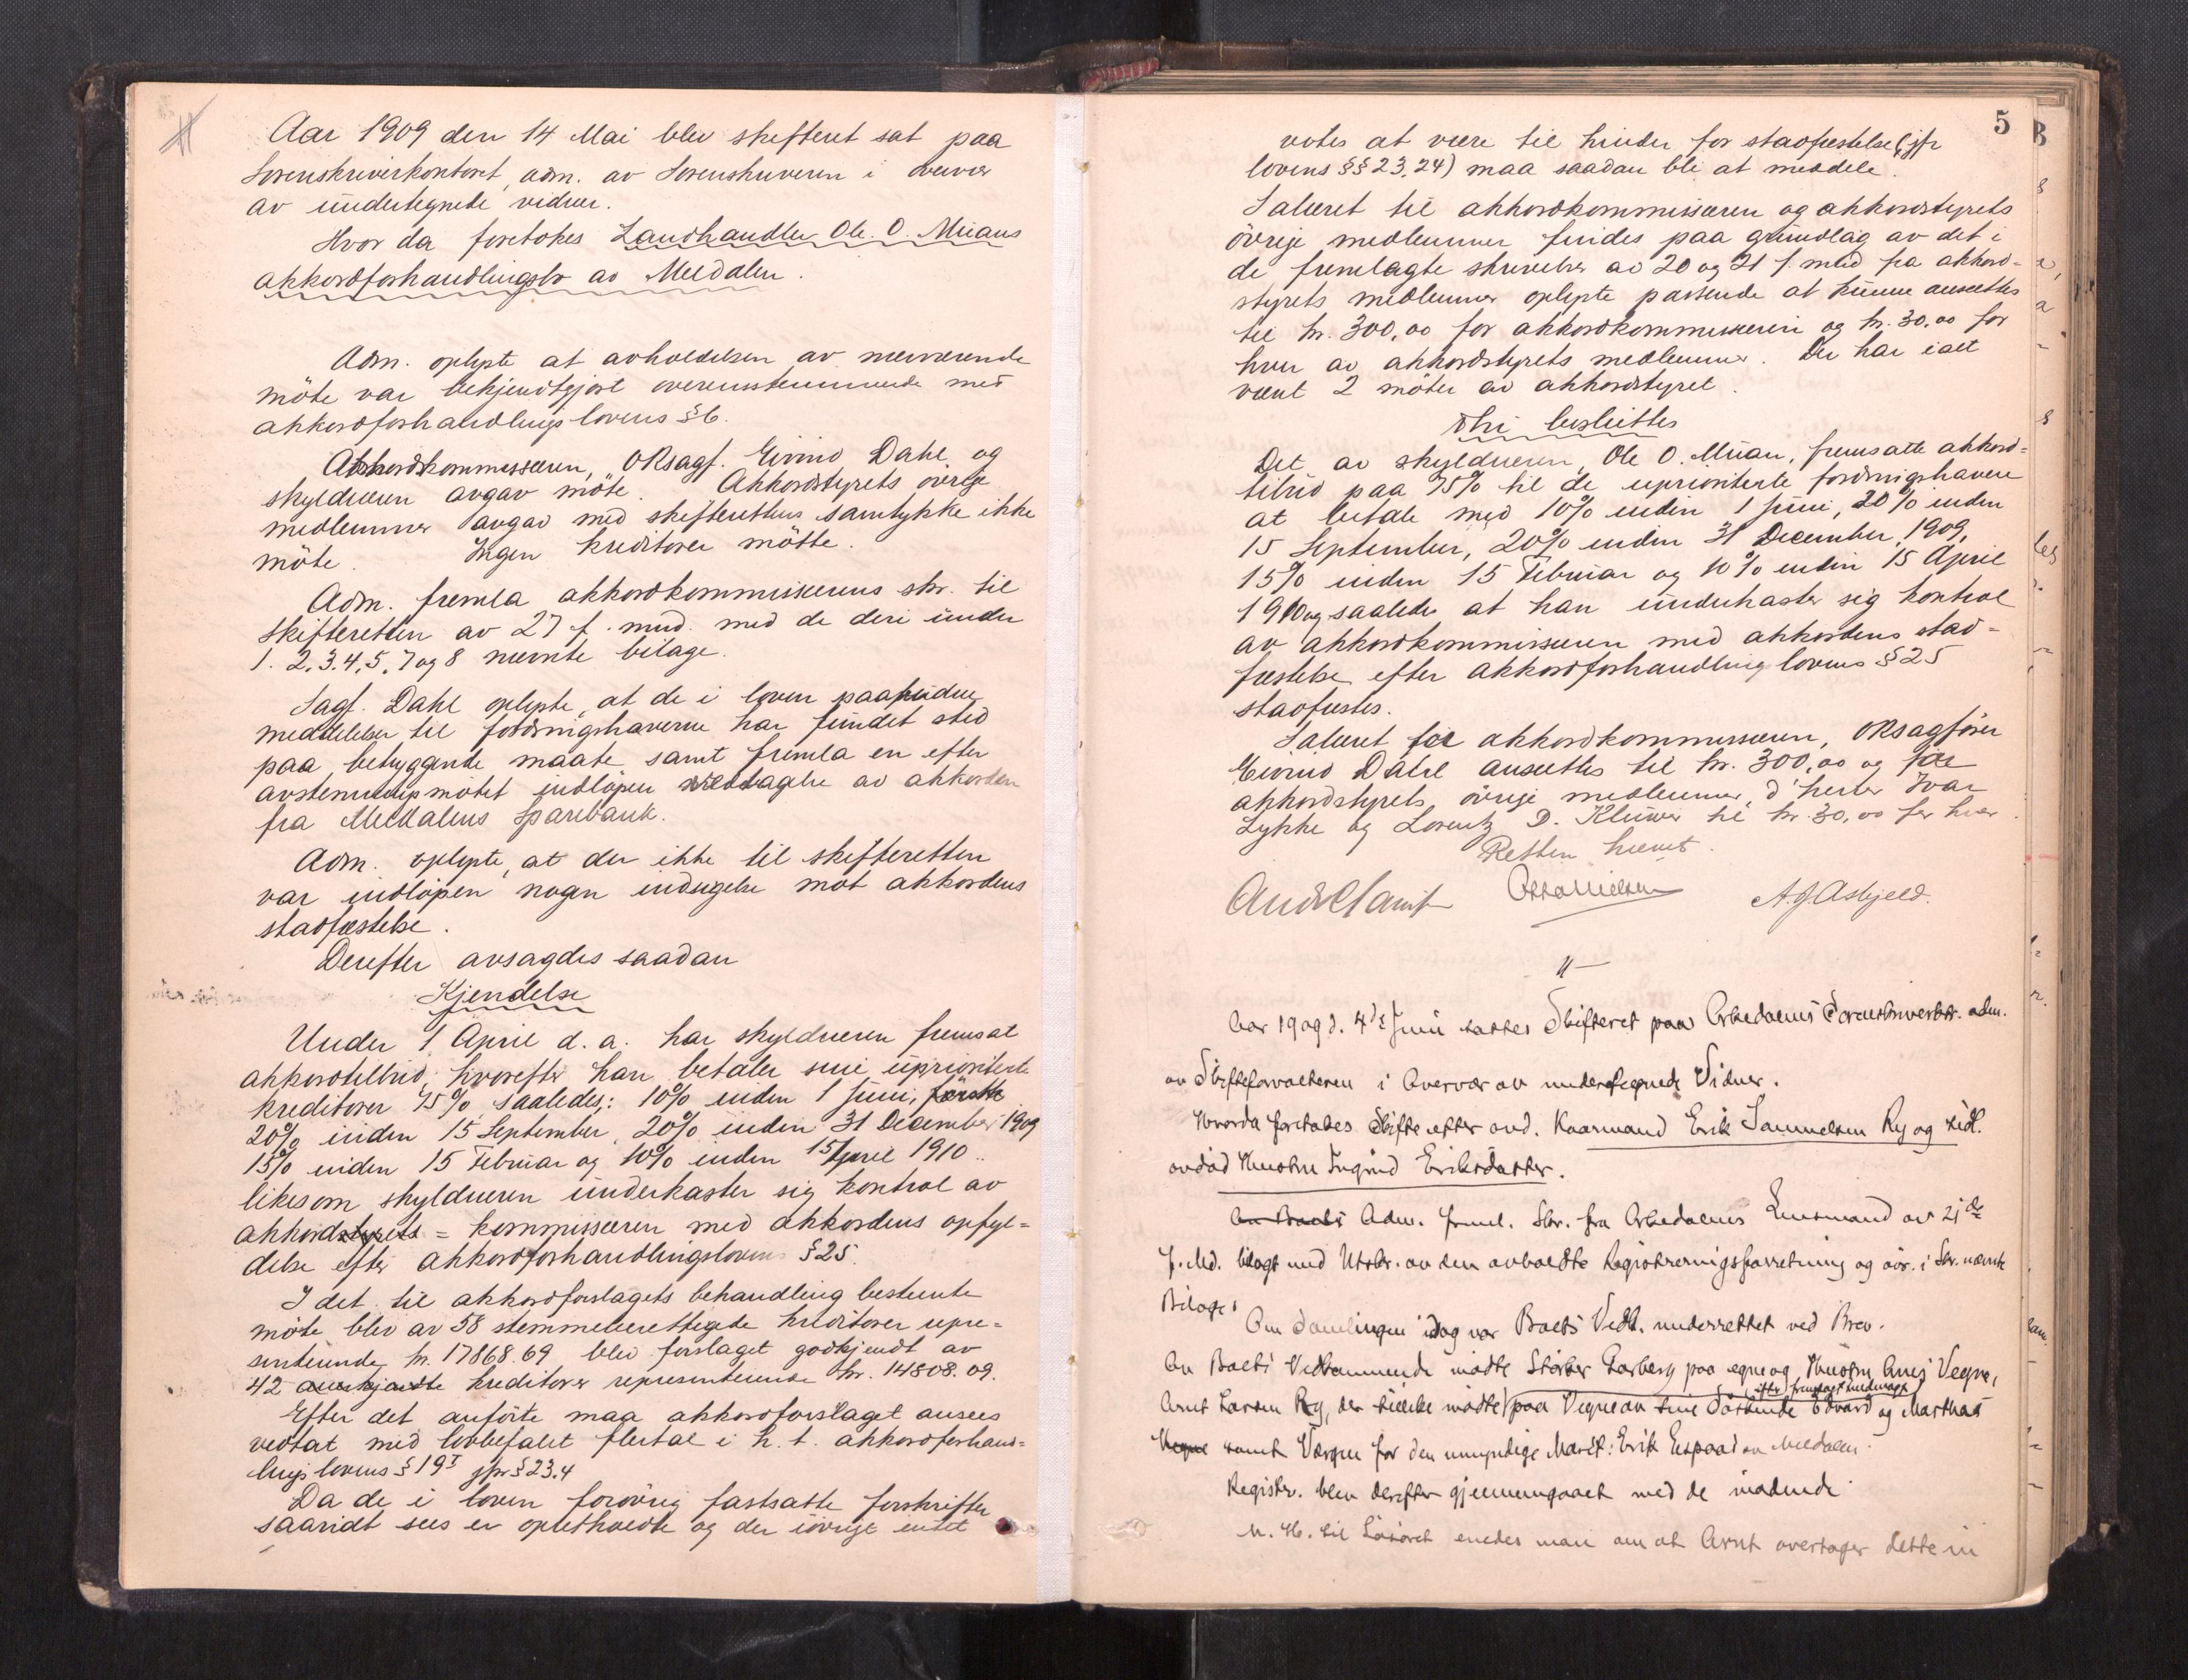 Aar 1909 den 14 Mai blev skifteret sat paa
Sorenskriverkontoret, adm. av Sorenskriveren i overvær
av undertegnede vidner.
Hvor da foretokes Landhandler Ole O. Muans
akkordforhandlingsbo av Meldalen.
Adm. oplyste at avholdelsen av nærværende
möte var bekjendtgjort overensstemmende med
akkordforhandlingslovens § 6.
Akkordkommissæren, ORsagf. Eivind Dahl og
skyldneren avgav möte. Akkordstyrets övrige
medlemmer avgav med skifterettens samtykke ikke
möte. Ingen kreditorer mötte.
Adm. fremla akkordkommissærens skr. til
skifteretten av 27 f. mnd. med de deri under
1. 2. 3. 4, 5, 7 og 8 nævnte bilage.
Sagf. Dahl oplyste, at de i loven paabudne
meddelelser til fordringshaverne har fundet sted
paa betryggende maate samt fremla en efter
avstemningsmötet indlöpen vedtagelse av akkorden
fra Meldalens Sparebank.
Adm. oplyste, at der ikke til skifteretten
var indlöpen nogen indsigelse mot akkordens
stadfæstelse.
Derefter avsagdes saadan
Kjendelse
Under 1 April d. a. har skyldneren fremsat
akkordtilbud, hvorefter han betaler sine uprioriterte
kreditorer 75% saaledes: 10% inden 1 Juni,
20% inden 15 September, 20% inden 31 December 1909
15% inden 15 Februar og 10% inden 15 April 1910
likesom skyldneren underkaster sig kontrol av
akkordstyrets = kommissæren med akkordens opfyl=
delse efter akkordforhandlingslovens § 25.
I det til akkordforslagets behandling bestemte
möte blev av 58 stemmeberettigede kreditorer repre=
senterende kr. 17868.69 blev forslaget godkjendt av
42 kreditorer representerende kr. 14808.09.
Efter det anförte maa akkordforslaget ansees
vedtat med lovbefalet flertal i h. t. akkordforhand=
lingslovens § 19 I jfr § 23.4
Da de i loven forövrig fastsatte forskrifter
saavidt sees er opretholdte og der iövrige intet
5
votes at være til hinder for stadfæstelse (jfr
lovens §§ 23, 24) maa saadan bli at meddele.
Salæret til akkordkommissæren og akkordstyrets
övrige medlemmer findes paa grundlag av det i
de fremlagte skrivelser av 20 og 21 f. mnd fra akkord=
styrets medlemmer oplyste passende at kunne ansættes
til kr. 300,00 for akkordkommissæren og kr. 30,00 for
hver av akkordstyrets medlemmer. Der har ialt
vært 2 möter av akkordstyret.
Thi besluttes
Det av skyldneren, Ole O. Muan, fremsatte akkord=
tilbud paa 75% til de uprioriterte fordringshavere
at betale med 10% inden 1 Juni, 20% inden
15 September, 20% inden 31 December 1909,
15% inden 15 Februar og 10% inden 15 April
1910 og saaledes at han underkaster sig kontrol
av akkordkommissæren med akkordens stad=
fæstelse efter akkordforhandlingslovens § 25
stadfæstes.
Salæret for akkordkommissæren, ORsagförer
Eivind Dahl ansættes til kr. 300,00 og for
akkordstyrets övrige medlemmer, d'herrer Ivar
Lykke og Lorentz D. Klüwer til kr. 30,00 for hver.
Retten hævet.
Otto Nielsen A. J. Asbjeld.
Aar 1909 d. 4de Juni sattes Skifteret paa Orkedalens Sorenskriverktr. adm.
av Skifteforvalteren i Overvær av undertegnede Vidner.
Hvorda foretokes Skifte efter avd. Kaarmand Erik Samuelsen Ry og tidl.
avdöd Hustru Ingrid Eriksdatter.
Adm. freml. Skr. fra Orkedalens Lensmand av 21de
f. Md. bilagt med Utskr. av den avholdte Registreringsforretning og övr. i Skr. nævnte
Bilage.
Om Samlingen idag var Boets Vedk. underrettet ved Brev.
Av Boets Vedkommende mödte Störker Garberg paa egne og Hustru Anes Vegne,
Arnt Larsen Ry, der tillike mödte paa Vegne av sine Söskende Edvard og Marthas
efter fremlagt fuldmagt
Vegne samt Værgen for den umyndige Marit: Erik Espaas av Meldalen.
Registr. blev derefter gjennemgaaet med de mödende.
M. H. til Lösöret enedes man om at Arnt overtager dette in